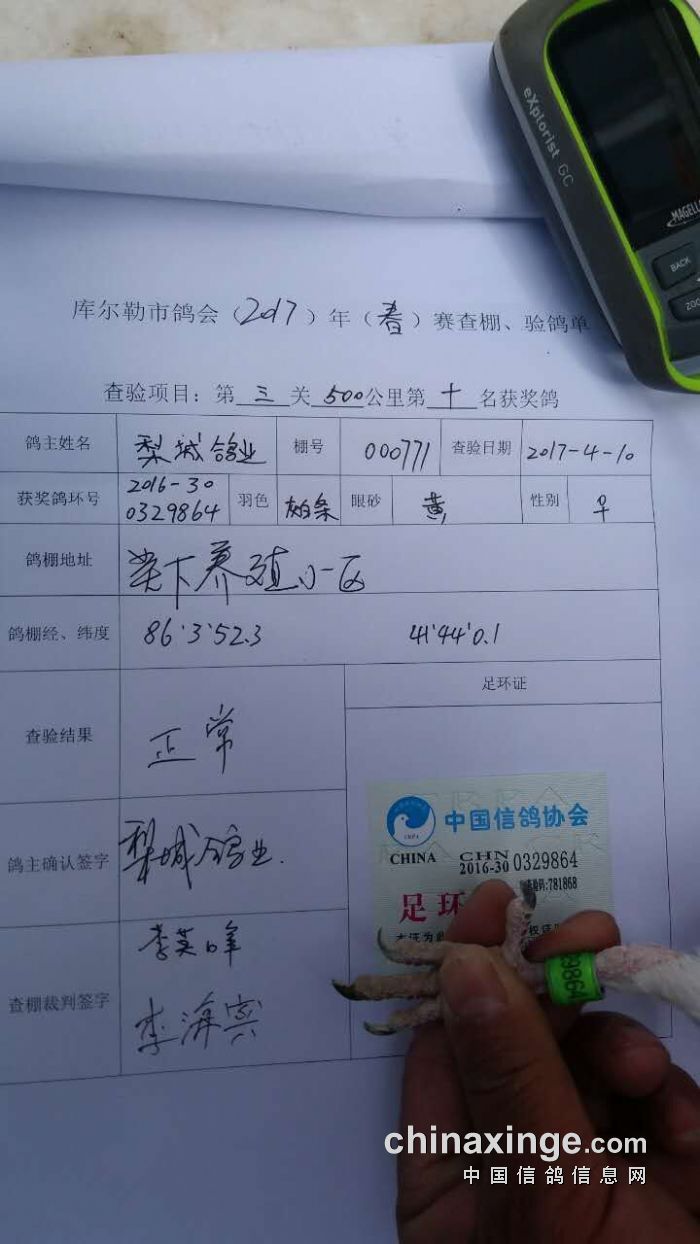 eXplorist GC
MAGELL
BACK
ZOO
库尔勒市鸽会（2017）年（春）赛查棚、验鸽单
查验项目：第三关500公里第十名获奖鸽
鸽主姓名 梨城鸽业 棚号 000771 查验日期 2017-4-10
获奖鸽环号 2016-30 0329864 羽色 灰白条 眼砂 黄 性别 ♀
鸽棚地址 下养殖小区
鸽棚经、纬度 86°3'52.3 41°44'0.1
足环证
查验结果 正常
中国信鸽协会
CHINA CHN 2016-30 0329864
:781868
足环
鸽主确认签字 梨城鸽业.
查棚裁判签字 李英峰
李海宾
39864
chinaxinge.com
中国信鸽信息网